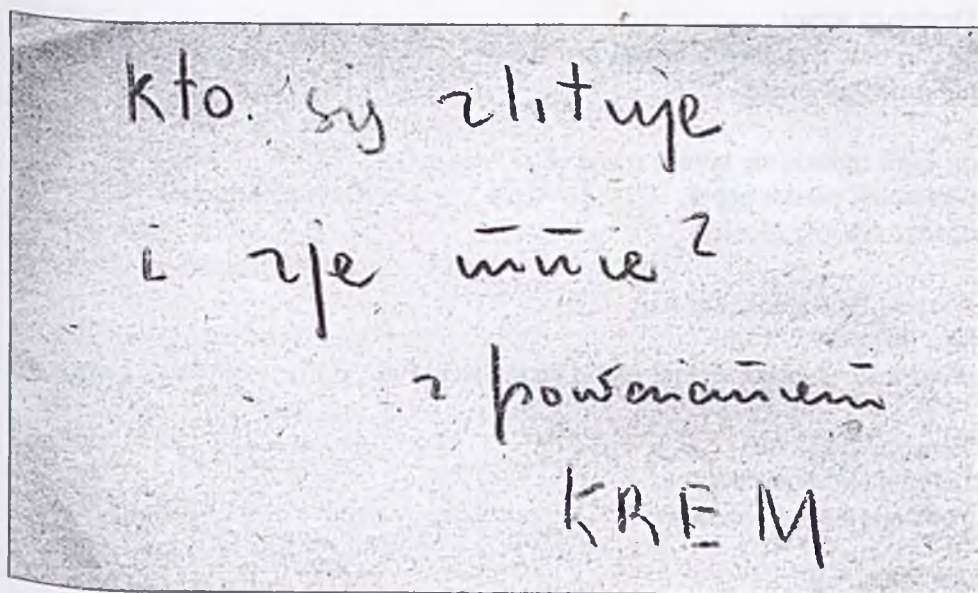 kto. się zlituje
i zje mnie?
z poważaniem
KREM